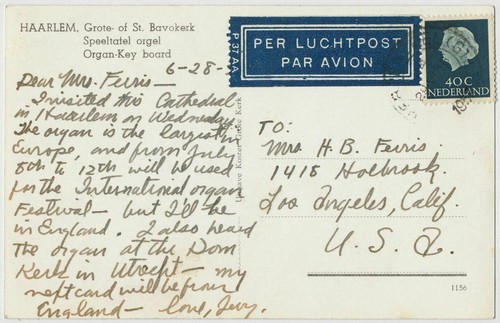 HAARLEM, Grote- of St. Bavokerk
Speeltafel orgel
Organ-Key board
6-28-
Dear Mrs. Ferris—
I visited this Cathedral
in Haarlem on Wednesday.
The organ is the largest in
Europe, and from July
8th to 12th will be used
for the International organ
Festival— but I'll be
in England. I also heard
the organ at the Dom
Kerk in Utrecht— my
next card will be from
England— love, Jerry.
P 37 AA
PER LUCHTPOST
PAR AVION
40C
NEDERLAND
TO:
Mrs. H. B. Ferris
1418 Holbrook
Los Angeles, Calif.
U. S. A.
1156